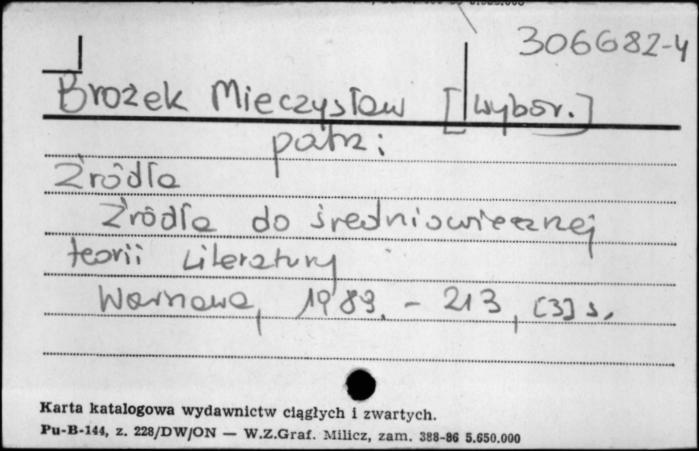 306682-4
Brożek Mieczysław [wybór.]
patrz:
Źródła
Źródła do średniowiecznej
teorii literatury
Warszawa, 1989. - 213, [3] s.
Karta katalogowa wydawnictw ciągłych i zwartych.
Pu-B-144, z. 228/DW/ON — W.Z.Graf. Milicz, zam. 388-86 5.650.000